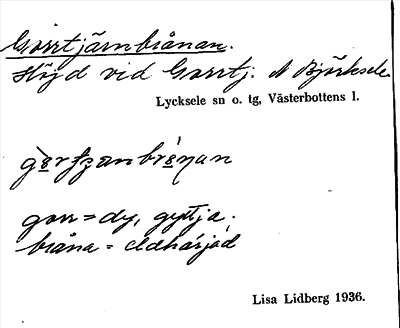 Gorrtjärnbrånan.
Höjd vid Gorrtj. N Björksele.
Lycksele sn o. tg, Västerbottens l.
gorr = dy, gyttja.
bråna = eldhärjad
Lisa Lidberg 1936.